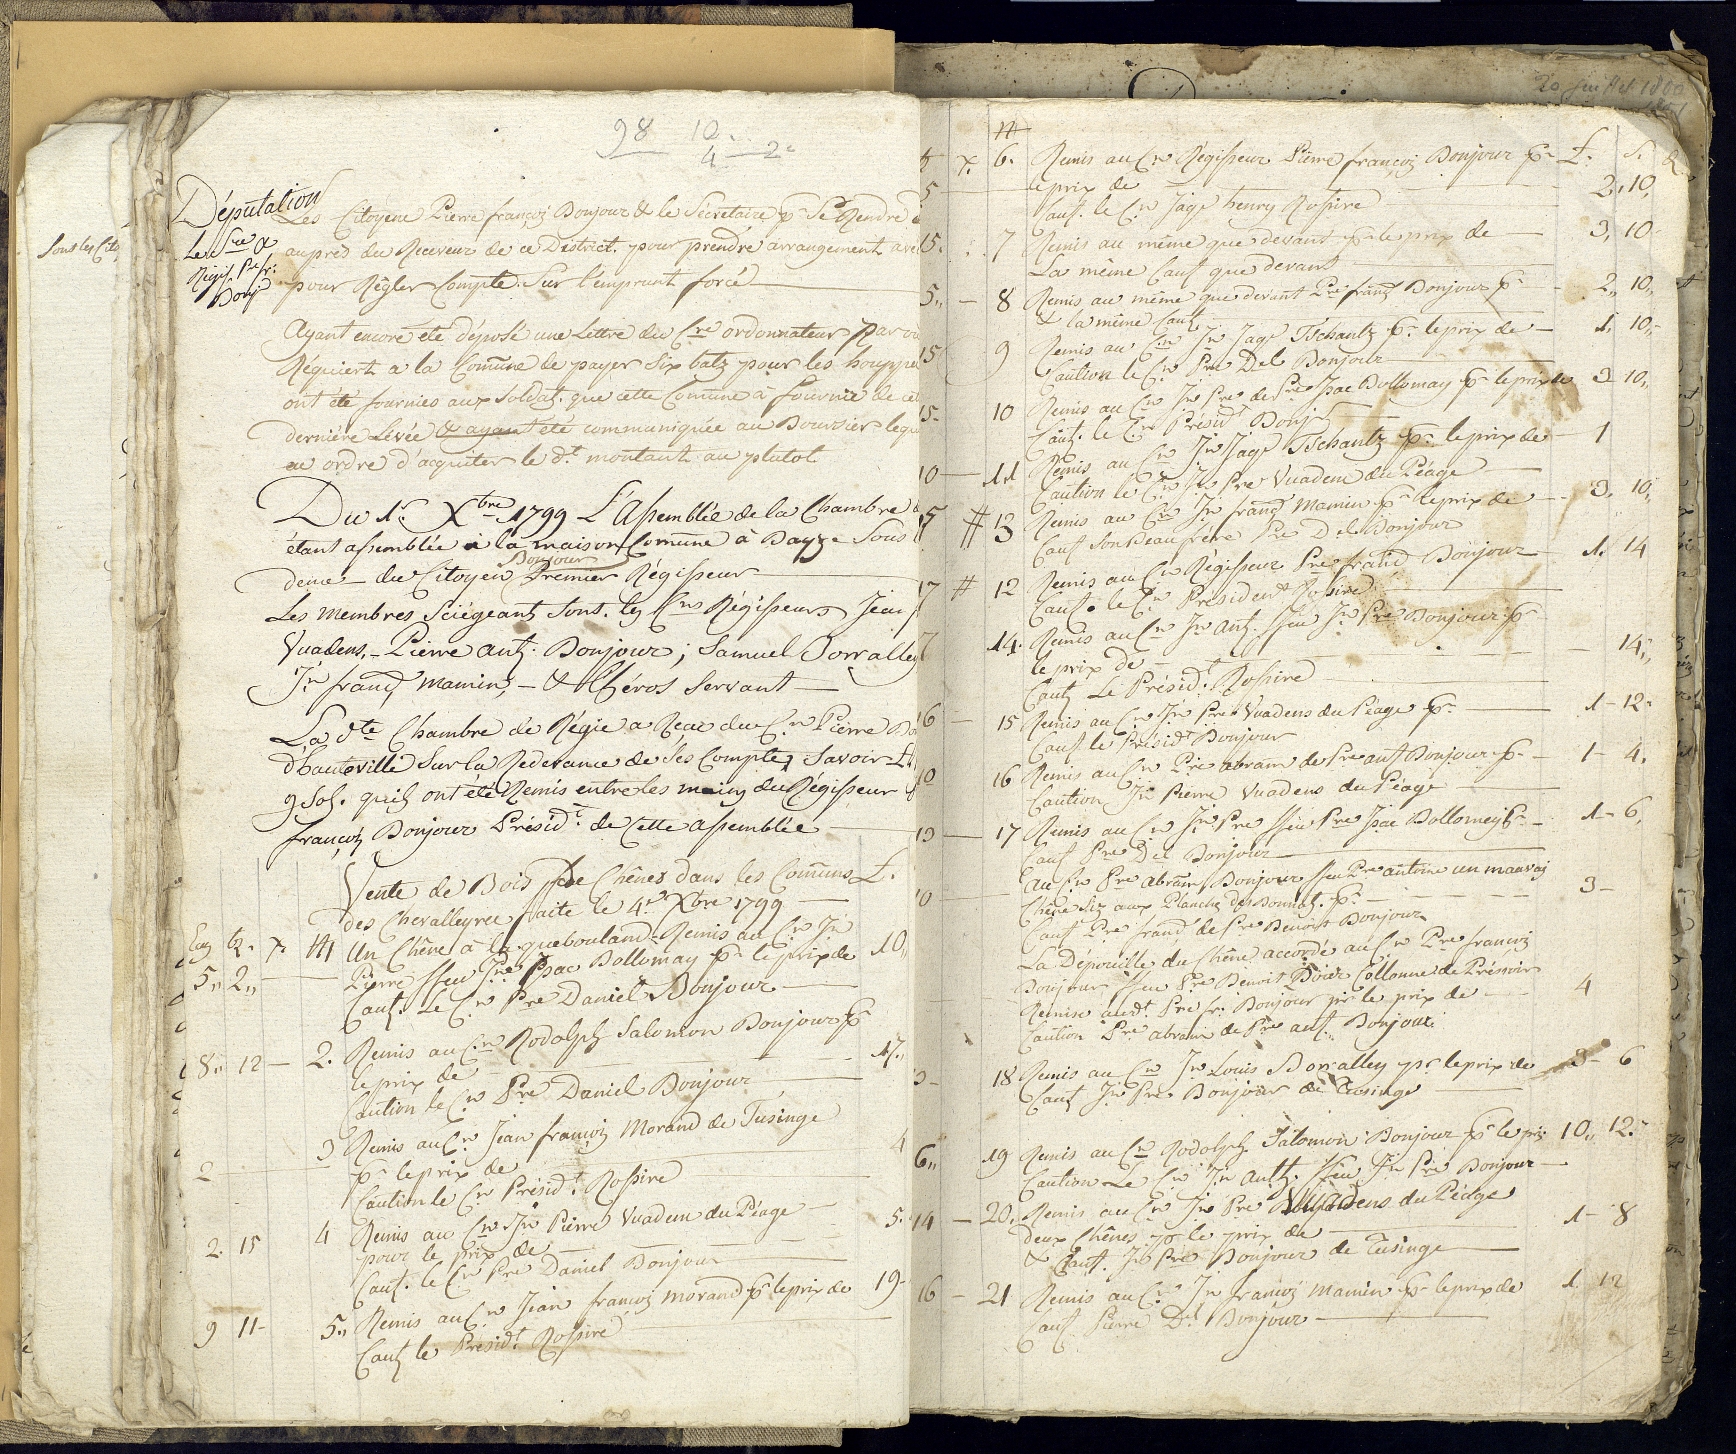 98 10.
4 2
Députation
Les Citoyens Pierre françois Bonjour & le Secretaire pr Se Rendre
Le Sre &
Régis. Pre fr.
Bonj
aupred du Receveur de ce District. pour prendre arrangement
pour Règler Compte. Sur l'emprunt forcé
Sous les Cito
Ayant encore été déposé une Lettre du Cre ordonnateur
Réquiert a la Comune de payer Six batz pour les houppe
ont été fournies aux Soldat. que cette Comune à fournie de
dernière Levée & ayant été communiquée au Boursier
ordre d'aquiter le dt. montant au plutot
Du 1r. Xbre 1799 L'Assemblée de la Chambre
étant assemblée à la maison Comune à Sous
Bonjour
du Citoyen Premier Régisseur
Les membres Sciégeant Sont. les Cns Régisseurs Jean
Vuadens, - Pierre ant. Bonjour; Samuel Dorralley
Jn franç Mamin, - & L'héros Servant
La dte Chambre de Régie a Reçu du Cn Pierre
d'hauteville Sur la Redevance de Ses Comptes Savoir
9 Sols. qui ont été Remis entre les mains du Régisseur
françois Bonjour Présidt. de Cette assemblée
Vente de Bois de Chênes dans les Comuns L.
des Chevalleyres faite le 4e Xbre 1799
Un Chêne à la Remis au Cn Jn 10,,
5,, 2,, Pierre ffeu Pre Isac Dollomay pr le prix de
Caut. Le Cn Pre Daniel Bonjour
8,, 12 - 2. Remis au Cn Rodolph Salomon Bonjour pr
le prix de 17.
Caution le Cn Pre Daniel Bonjour
3 Remis au Cn Jean françois Morand de Tusinge
2 pr le prix de 4
Caution le Cn Présidt. Rossire
4 Remis au Cn Jn Pierre Vuadens du Péage 5.
2. 15 pour le prix de
Caut. le Cn Pre Daniel Bonjour
9 11 - 5,, Remis au Cn Jean françois Morand pr le prix de 19 -
Caut le Présidt Rossire
6. Remis au Cn Régisseur Pierre françois Bonjour pr L. S.
5 le prix de 2,, 10,
Caut. le Cn Jaqe henry Rossire
15. 7 Remis au même que devant pr le prix de 3, 10 -
La même Caut que devant
5,, - 8 Remis au même que devant Pre franç Bonjour pr 2,, 10,,
& la même Caut
15 9 Remis au Cn Jn Jaqe Tschantz pr le prix de 1. 10,,
Caution le Cn Pre Del Bonjour
15 - 10 Remis au Cn Jn Pre de Pre Isac Dollomay pr le prix de 3 10,,
Caut. le Cn Présidt Bonj
10 - 11 Remis au Cn Jn Jaqe Tschantz pr le prix de 1
Caution le Cn Jn Pre Vuadens du Péage
5 # 13 Remis au Cn Jn franç Mamin pr le prix de 3. 10,,
Caut Son Beau frère Pre Del Bonjour
17 # 12 Remis au Cn Régisseur Pre Bonjour 1. 14
Caut. le Cn Président Rossire
7 14. Remis au Cn Jn ant. ffeu Jn Pre Bonjour pr
le prix de 14,,
Caut Le Présidt. Rossire
6 - 15 Remis au Cn Jn Pre Vuadens du Péage pr 1 - 12 -
Caut le Présidt Bonjour
10 16 Remis au Cn Pre abram de Pre ant Bonjour pr 1 - 4.
Caution Jn Pierre Vuadens du Péage
13 - 17 Remis au Cn Jn Pre ffeu Pre Isac Dollomey pr 1 - 6,
Caut Pre Del Bonjour
10 - au Cn Pre abram Bonjour ffeu Pre antoine un mauvais
Chêne Sis aux Planches pr 3 -
Caut Pre franç de Pre Benoit Bonjour
La Dépouille du Chêne accordé au Cn Pre françois
Bonjour ffeu Pre Benoit Pour Collonne de Préssoir
Remise audt. Pre fr. Bonjour pr le prix de 4
Caution Pre abram de Pre ant. Bonjour
3 - 18 Remis au Cn Jn Louis Dorralley pr le prix de 3 - 6
Caut Jn Pre Bonjour de Tusinge
6,, 19 Remis au Cn Rodolph Salomon Bonjour pr le prix 10,, 12.
Caution Le Cn Jn anth. ffeu Jn Pre Bonjour
14 - 20. Remis au Cn Jn Pre Vuadens du Péage
deux Chênes pr le prix de 1 - 8
& Caut. Jn Pre Bonjour de Tusinge
16 - 21 Remis au Cn Jn françois Mamin pr le prix de 1 12
Caut Pierre Dl Bonjour